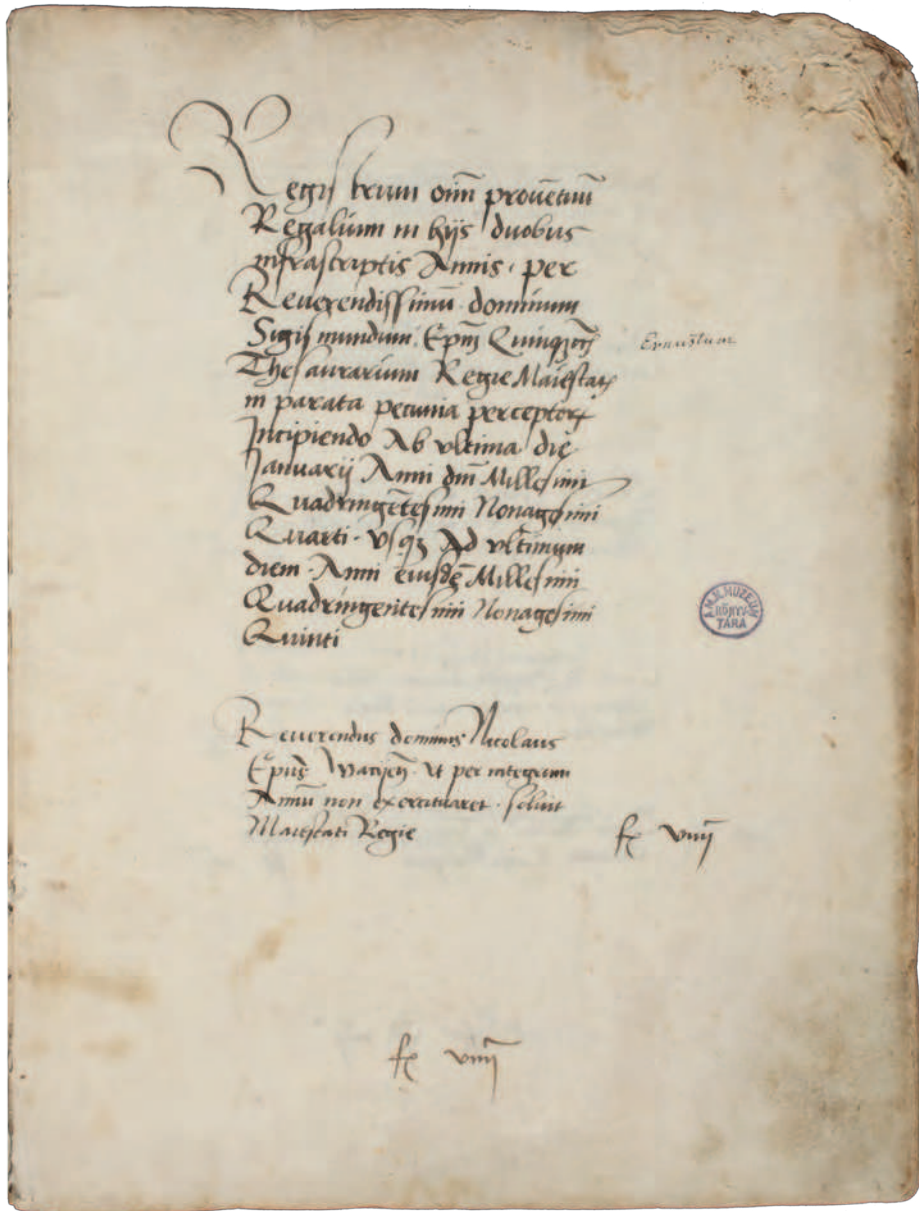 Registrum oim̄ prouētuū
Regalium in hijs duobus
infrascriptis Annis · per
Reuerendissimū dominum
Sigismundum Ep̄m Quinqꝫ Ernustum
Thesaurarium Regie Maiestatꝭ
in parata pecunia perceptoꝝ
Incipiendo Ab vltima die
Januarij Anni dnī Millesimi
Quadringētesimi Nonagesimi
Quarti · Vsqꝫ Ad vltimum
diem · Anni eiusdē Millesimi
Quadringentesimi Nonagesimi
Quinti
M. N. MUZEUM
KÖNYV-
TÁRA
Reuerendus dominus Nicolaus
Ep̄us Wacień · Vt per integrum
Annū non exercituaret · soluit
Maiestati Regie fl viiij
fl viiij